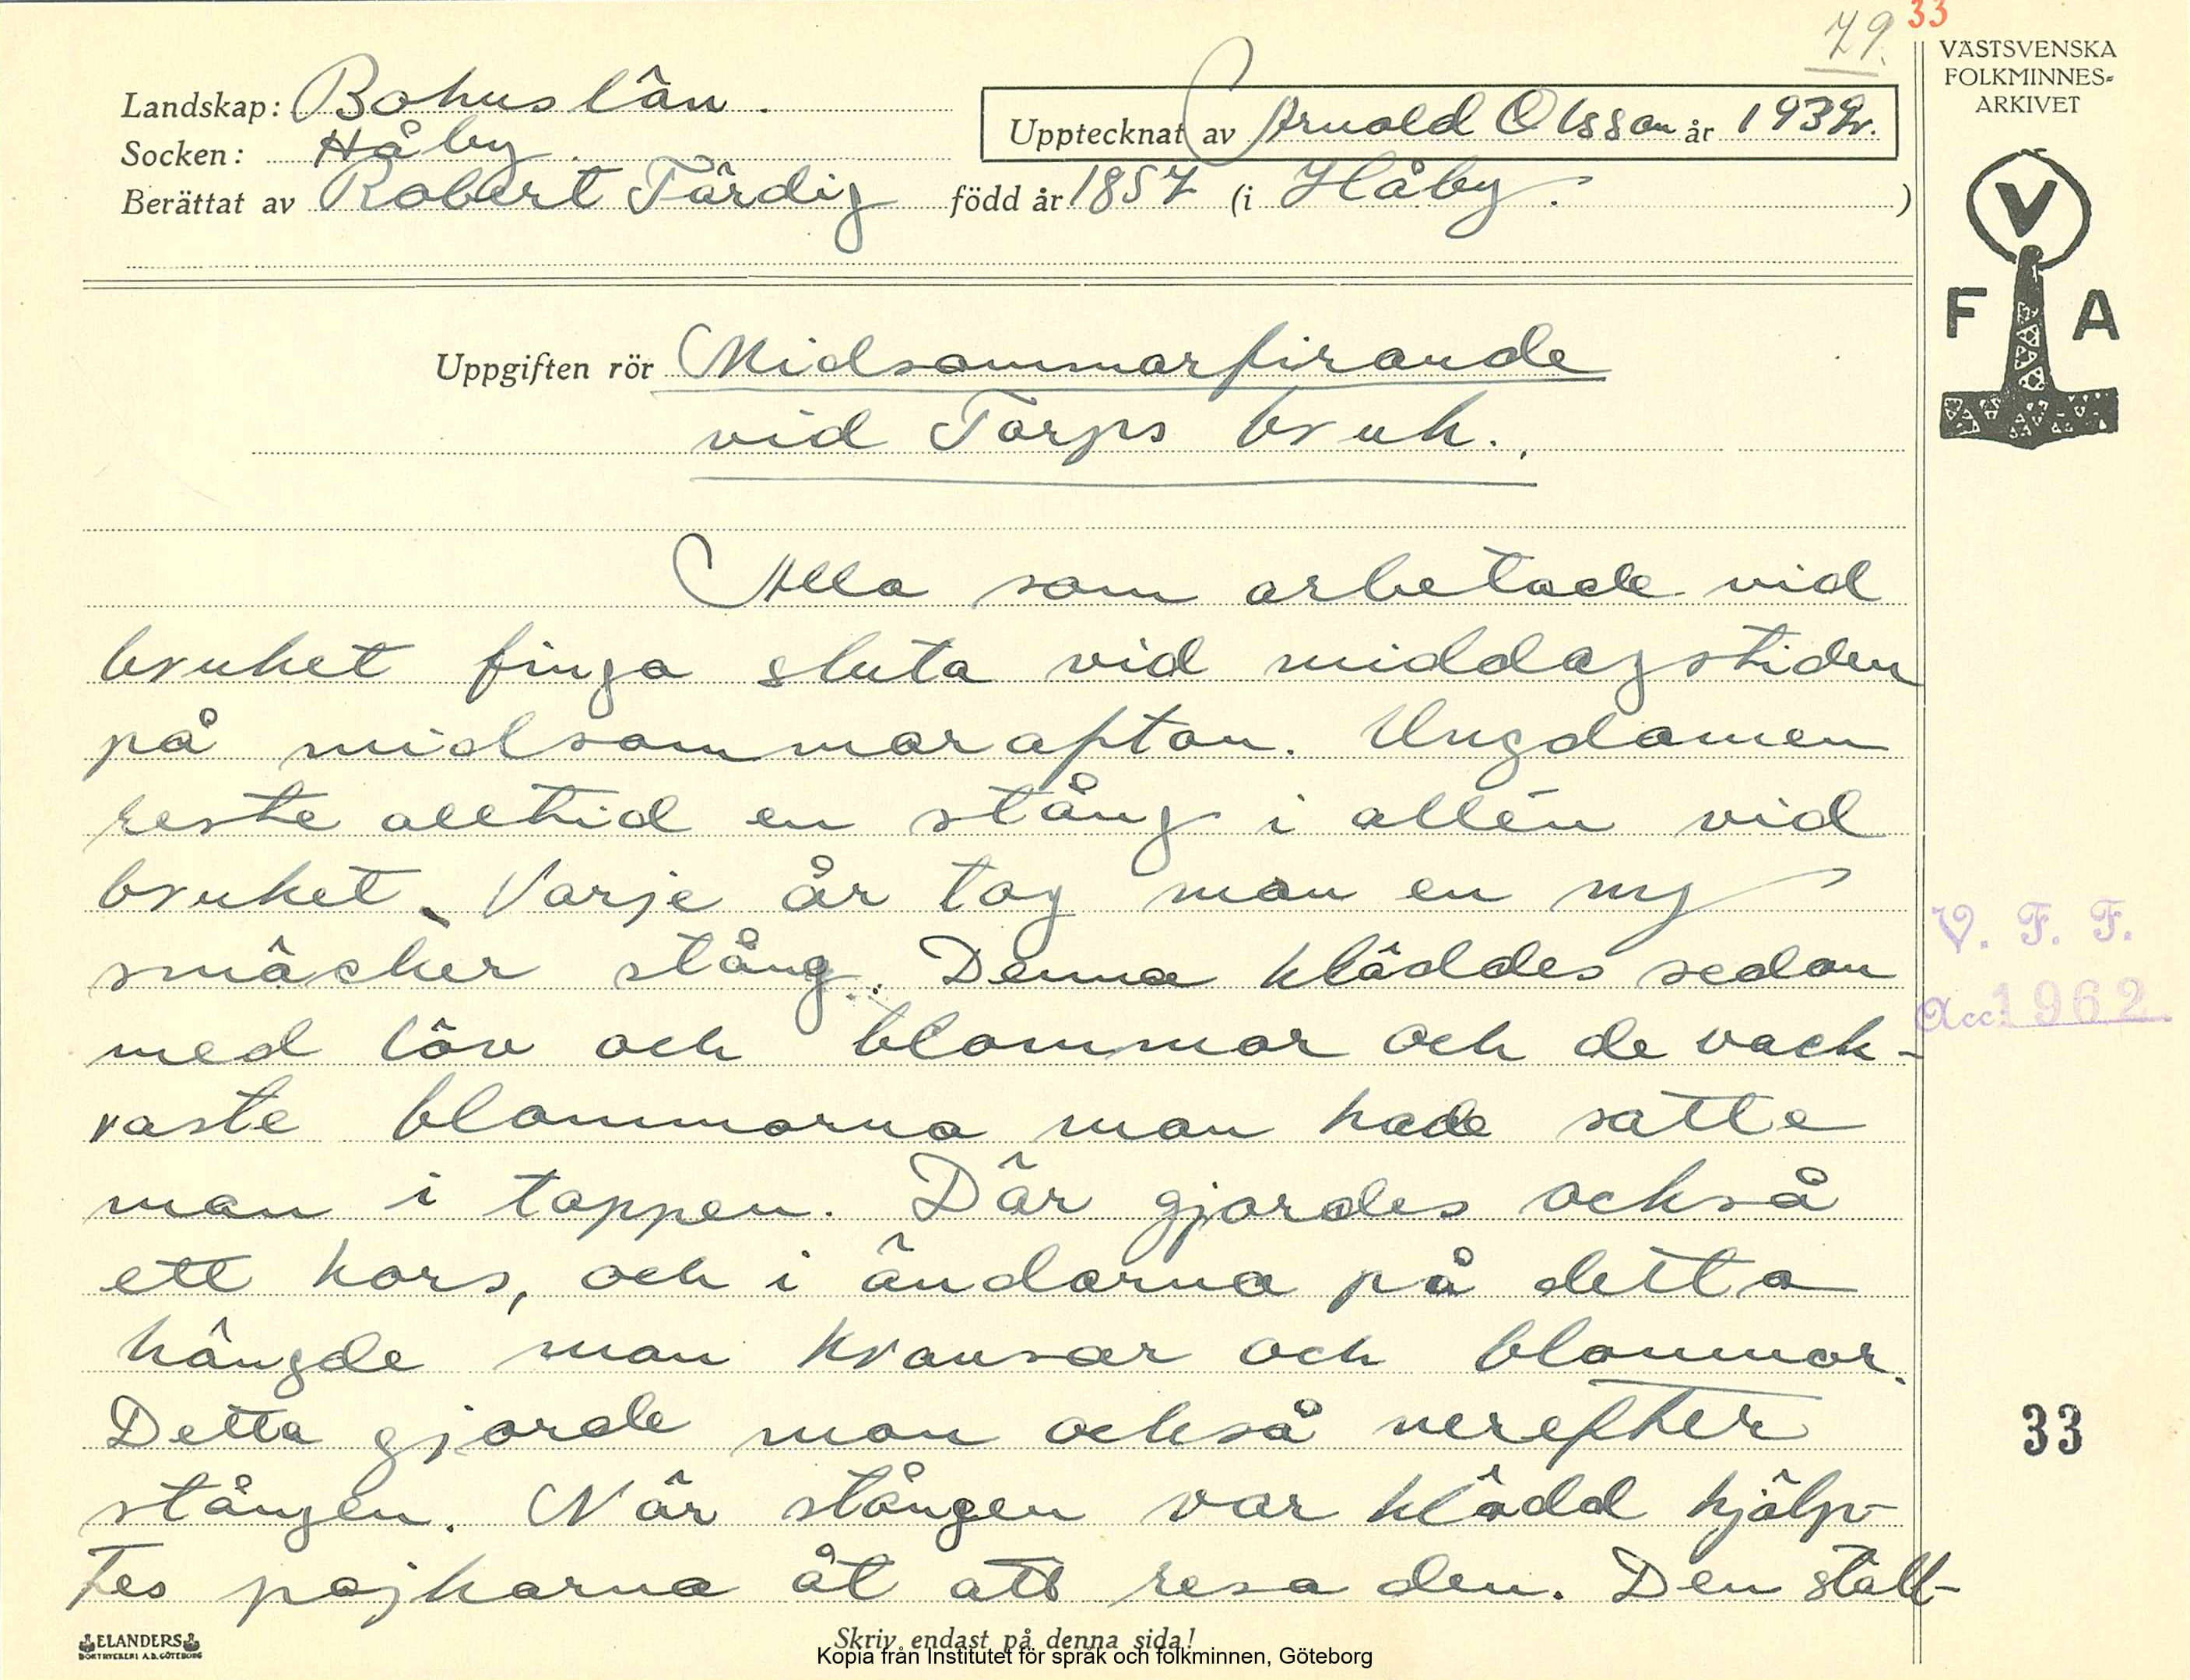 79. 33
VÄSTSVENSKA
FOLKMINNES-
ARKIVET
Landskap: Bohuslän.
Upptecknat av Arnold Olsson år 1932.
Socken: Håby.
Berättat av Robert Färdig född år 1857 (i Håby. )
V
F A
Uppgiften rör Midsommarfirande
vid Torps bruk.
Alla som arbetade vid
bruket finga sluta vid middagstiden
på midsommarafton. Ungdomen
reste alltid en stång i allén vid
bruket. Varje år tog man en ny
smäcker stång. Denna kläddes sedan
med löv och blommor och de vack-
raste blommorna man hade satte
man i toppen. Där gjordes också
ett kors, och i ändarna på detta
hängde man kransar och blommor.
Detta gjorde man också nerefter
stången. När stången var klädd hjälp-
tes pojkarna åt att resa den. Den ställ-
V. F. F.
Acc. 1962
33
ELANDERS
BOKTRYCKERI A.B. GÖTEBORG
Skriv endast på denna sida!
Kopia från Institutet för språk och folkminnen, Göteborg